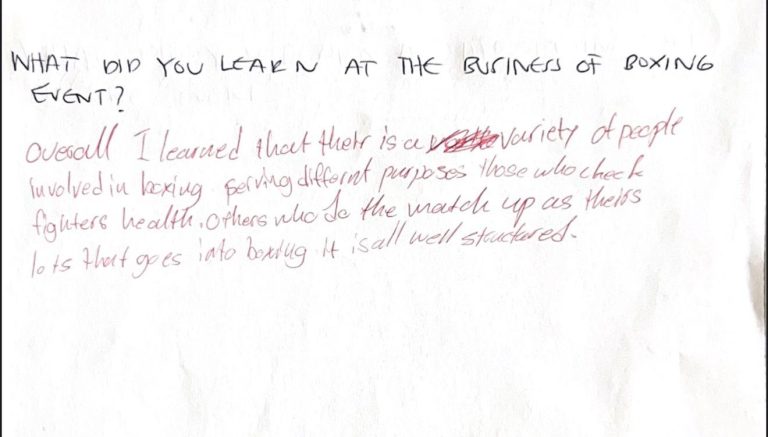 WHAT DID YOU LEARN AT THE BUSINESS OF BOXING
EVENT?
Overall I learned that their is a variety of people
involved in boxing serving different purposes those who check
fighters health, others who do the match up as theirs
lots that goes into boxing it is all well structured.